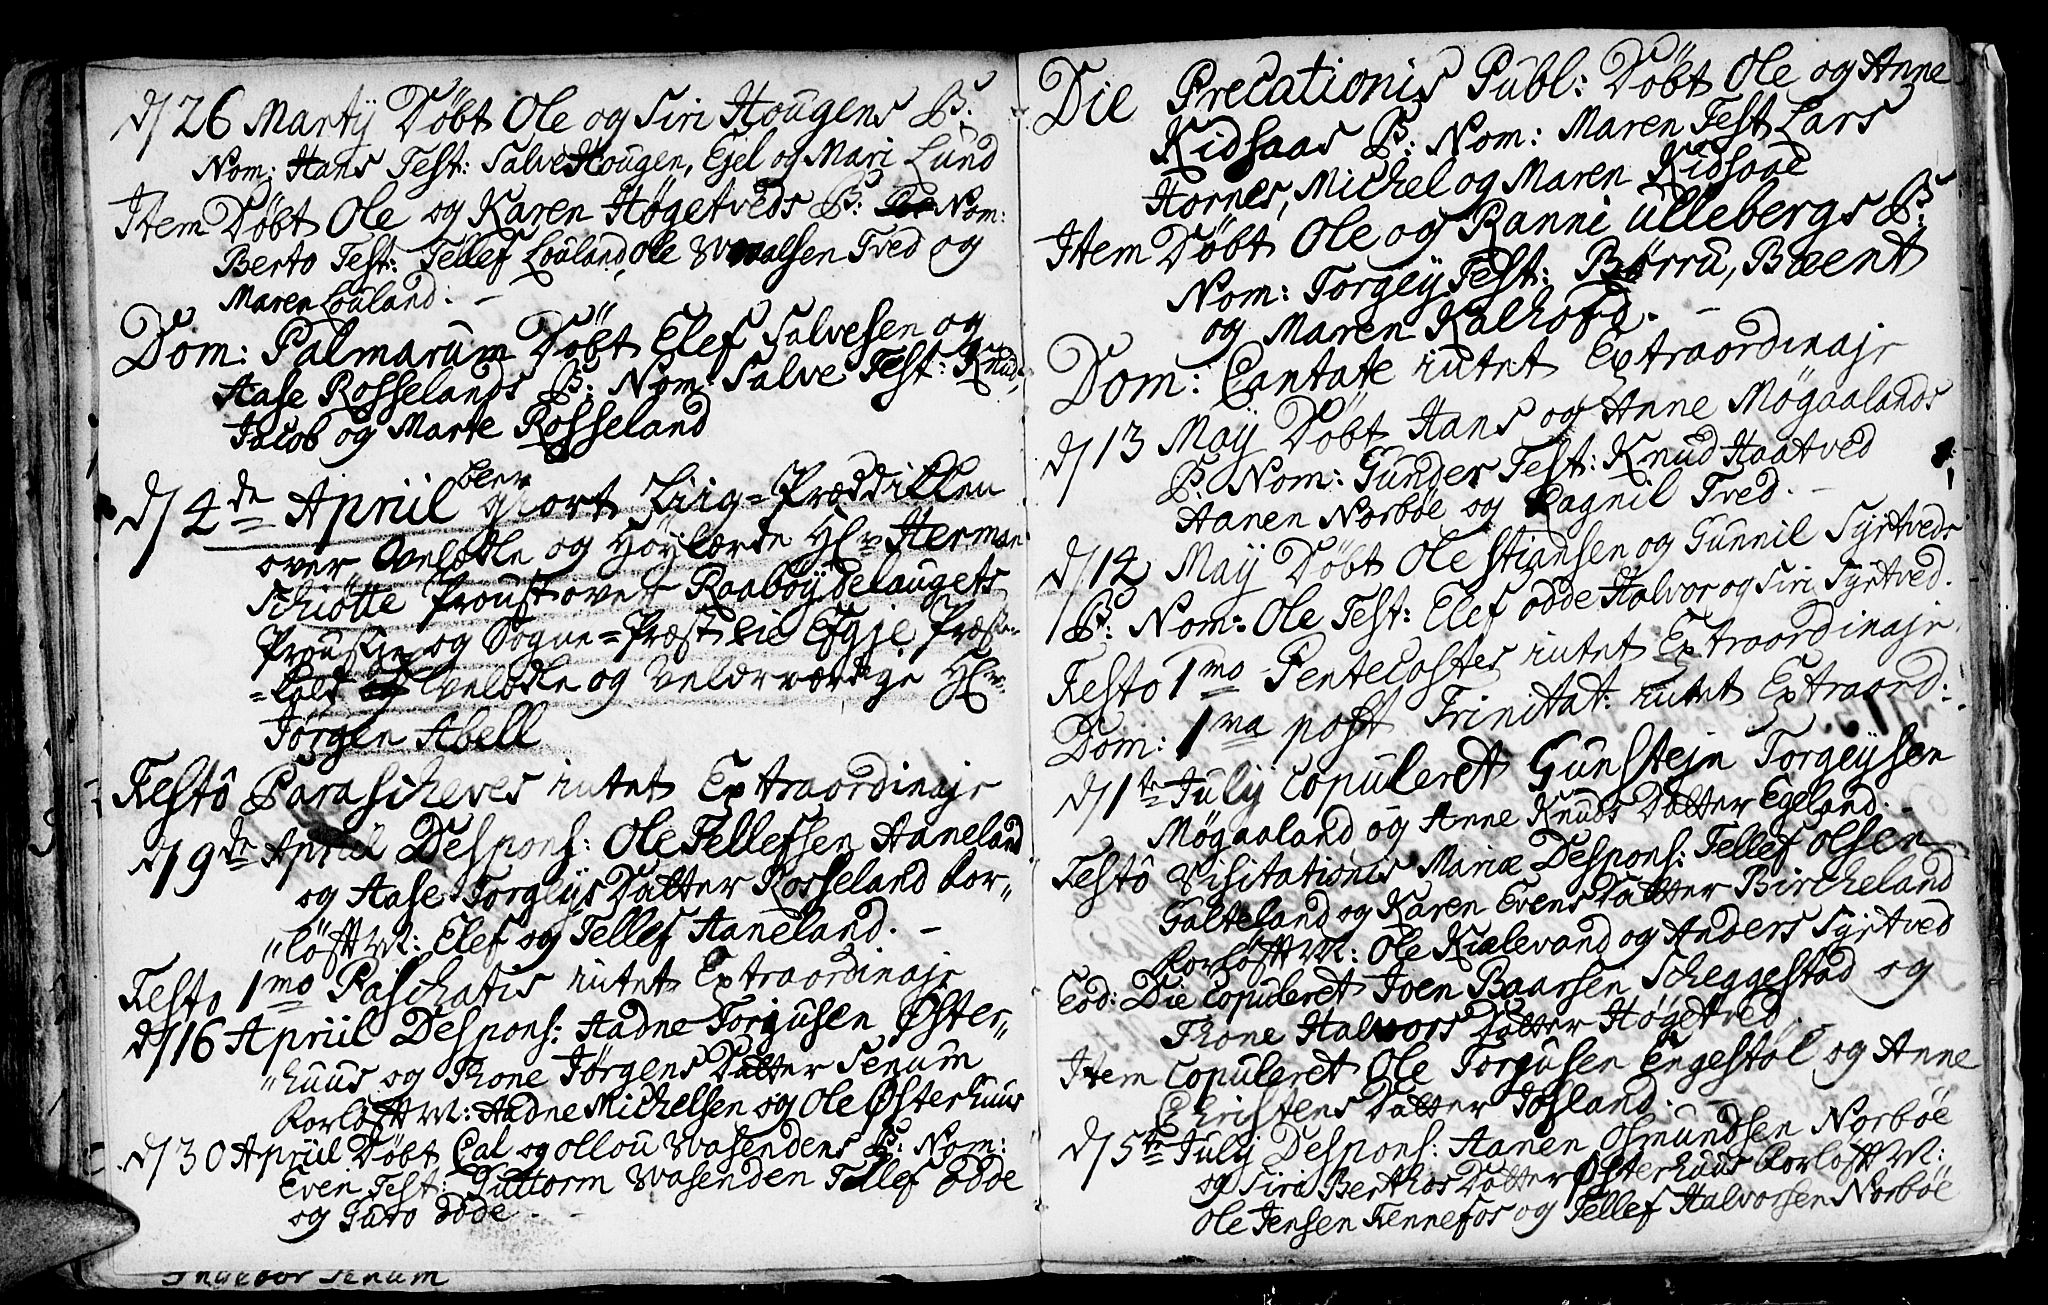 d/ 26 Martij Döbt Ole og Siri Hougens B:
Nom: Hans Test: Salve Hougen, Ejel og Mari Lund
Item Döbt Ole og Karen Høgetveds B: Nom:
Berto Test: Tellef Louland, Ole Tved og
Maren Louland. –
Dom: Palmarum Döbt Elef Salvesen og
Aase Rosselands B: Nom: Salve Test: Knud,
Jacob og Marte Rosseland
d/ 4de Apriil blev giort Liig=Præddiken
over Velædle og Höylærde Hr Herman
Schiötte Proust over Raabøydelaugets
Proustie og Sogne=Præst til Efje Præste-
=Gield Velædle og Velærværdige Hr
Jørgen Abell
Festô Parascheves intet Extraordinajr
d/ 9de Apriil Despons: Ole Tellefsen Aaneland
og Aase Torgeÿs Datter Rosseland For„
„löft M: Elef og Tellef Aaneland. –
Festo 1mo Paschatis intet Extraordinajr
d/ 16 Apriil Despons: Aadne Torgusen Øster„
„huus og Thone Jørgens Datter Senum
Forlöft M: Aadne Michelsen og Ole Østerhuus
d/ 30 Apriil Döbt Cal og Ollou Wasendens B: Nom:
Even Test: Guttorm Wasenden Tellef Odde
og Guro Odde. –
Ingebor Senum
Die Precationis Publ: Döbt Ole og Anne
Kidsaas B: Nom: Maren Test Lars
Hornes, Michel og Maren Kidsaae
Item Döbt Ole og Ranni Ullebergs B:
Nom: Torgeÿ Test: Børru, Baent
og Maren Kalhofd. –
Dom: Cantate intet Extraordinajr
d/ 13 Maÿ Döbt Hans og Anne Møgaalands
B. Nom: Gunder Test: Knud Haatved
Aanen Norbøe og Ragnil Tved. –
d/ 14 Maÿ Döbt Ole Stiansen og Gunnil Sÿrtveds
B: Nom: Ole Test: Elef Odde Halvor og Siri Sÿrtved.
Festo 1mo Pentecostes intet Extraordinajr
Dom: 1ma post Trinitat: intet Extraord:
d/ 1te Julÿ Copuleret Gunstejn Torgeÿsen
Møgaaland og Anne Knuds Datter Egeland.
Festô Visitationis Mariæ Despons: Tellef Olsen
Galteland og Karen Evens Datter Bircheland
Forlöft M: Ole Kialevand og Anders Sÿrtved
Eod: Die Copuleret Joen Baarsen Scheggestad og
Thone Halvors Datter Høgetved.
Item Copuleret Ole Torgusen Engestøl og Anne
Christens Datter Josland.
d/ 5te Julÿ Despons: Aanen Osmundsen Norbøe
og Siri Berthos Datter Østerhuus Forlöft M:
Ole Jensen Fennefos og Tellef Halvorsen Norbøe